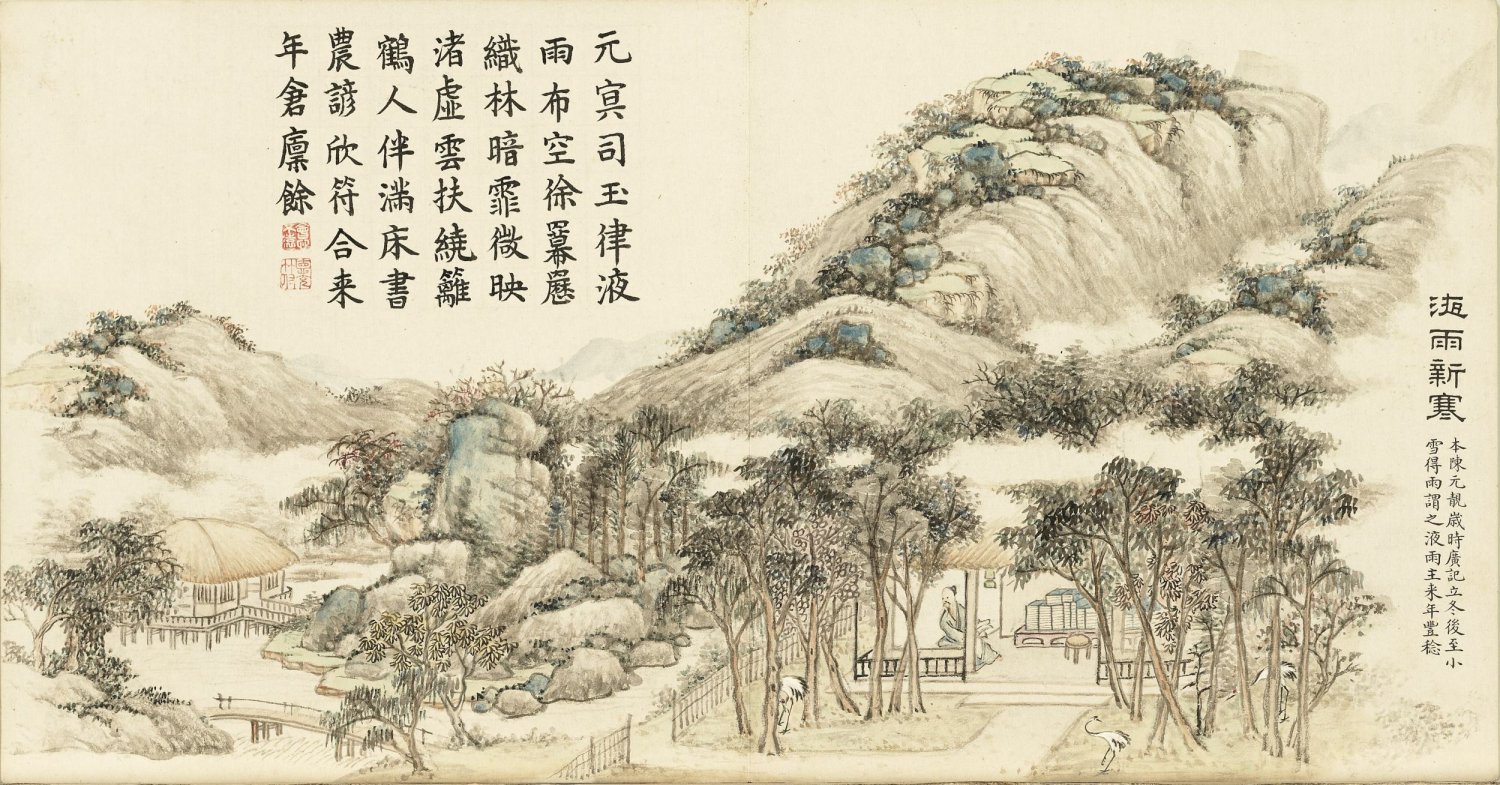 液雨新寒
本陳元靚歲時廣記立冬後至小
雪得雨謂之液雨主来年豐稔
元㝠司玉律液
雨布空徐羃䍥
織林暗霏微映
渚虛雲扶繞籬
鶴人伴滿床書
農諺欣符合来
年倉廩餘